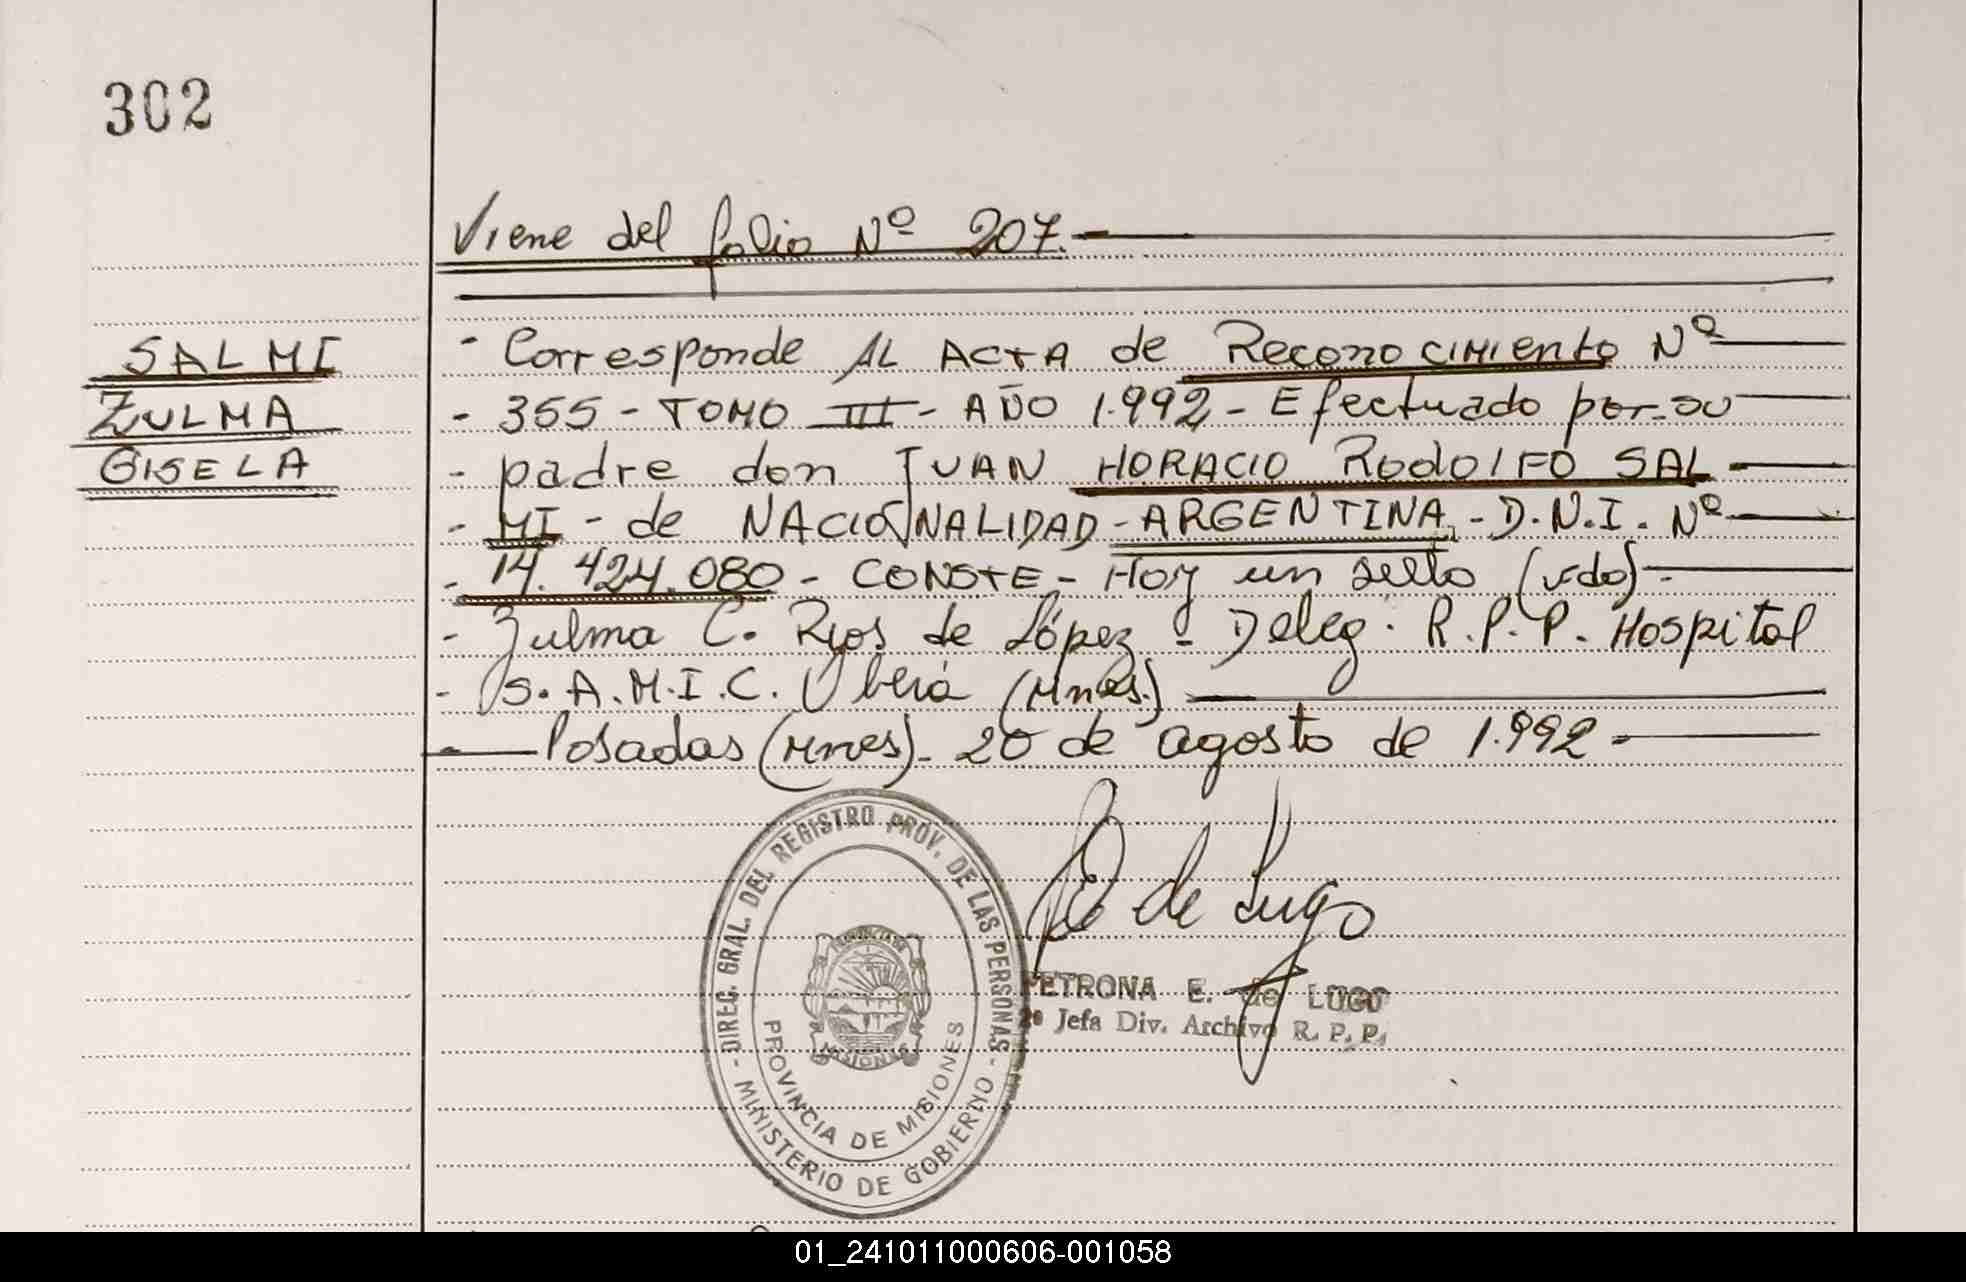 302
Viene del folio Nº 207.
SALMI
ZULMA
GISELA
- Corresponde AL ACTA de Reconocimiento Nº
- 355 - TOMO III - AÑO 1.992 - Efectuado por su
- padre don JUAN HORACIO RODOLFO SAL
- MI - de NACIONALIDAD - ARGENTINA - D.N.I. Nº
- 14.424.080 - CONSTE - Hoy un sello (fdo) -
- Zulma C. Rios de López - Deleg. R.P.P. Hospital
- S.A.M.I.C. Oberá (Mnes.)
Posadas (Mnes). 20 de agosto de 1.992 -
DIREC. GRAL. DEL REGISTRO PROV. DE LAS PERSONAS
- MINISTERIO DE GOBIERNO -
PROVINCIA DE MISIONES
PROVINCIA DE
MISIONES
de Lugo
PETRONA E. de LUGO
2º Jefa Div. Archivo R. P. P.
01_241011000606-001058